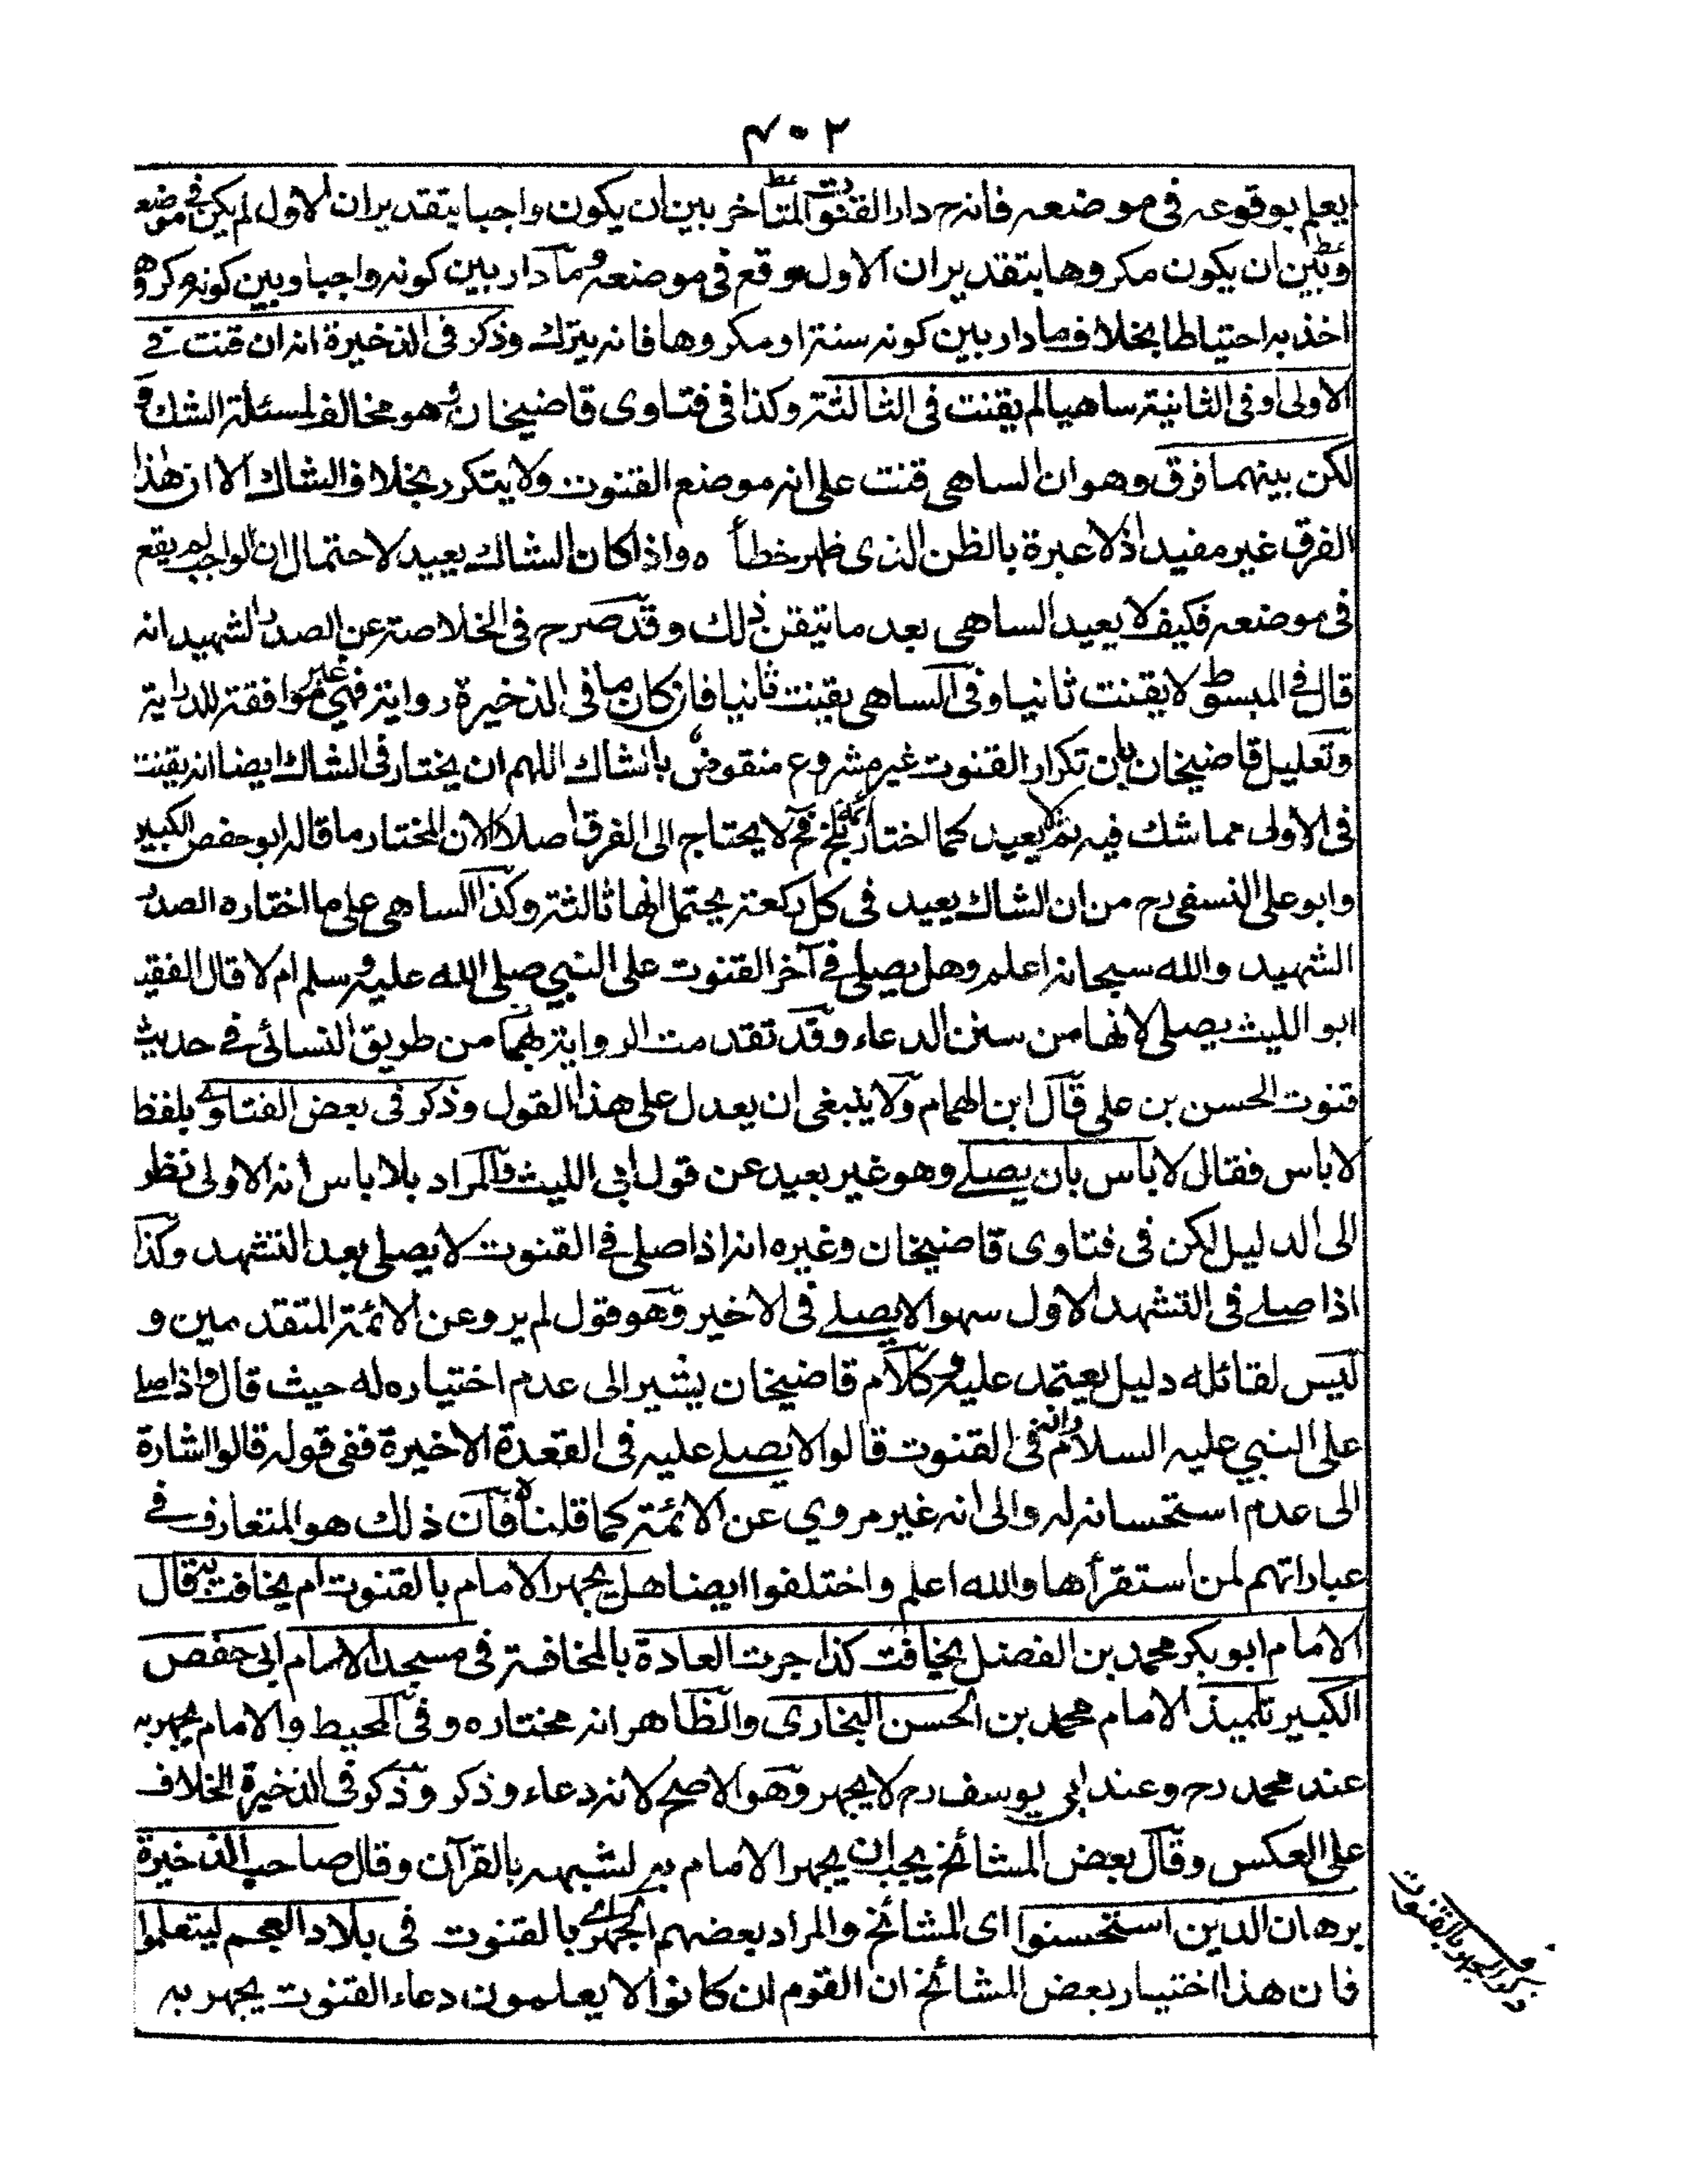 ٤٠٢
يعلم بوقوعه فى موضعه فانه ح دار القنوت المتأخر بين ان يكون واجبا بتقدير ان الاول لم يكن فى موضعه
وبين ان يكون مكروها بتقدير ان الاول وقع فى موضعه وما دار بين كونه واجبا وبين كونه مكروها
اخذ به احتياطا بخلاف ما دار بين كونه سنة او مكروها فانه يترك وذكر فى الذخيرة انه ان قنت فى
الاولى او فى الثانية ساهيا لم يقنت فى الثالثة وكذا فى فتاوى قاضيخان وهو مخالف لمسئلة الشك و
لكن بينهما فرق وهو ان الساهى قنت على انه موضع القنوت ولا يتكرر بخلاف الشاك الا ان هذا
الفرق غير مفيد اذ لا عبرة بالظن الذى ظهر خطأه واذا كان الشاك يعيد لاحتمال ان الواجب لم يقع
فى موضعه فكيف لا يعيد الساهى بعد ما تيقن ذلك وقد صرح فى الخلاصة عن الصدر الشهيد انه
قال فى المبسوط لا يقنت ثانيا وفى الساهى يقنت ثانيا فان كان ما فى الذخيرة رواية فهى غير موافقة للدراية
وتعليل قاضيخان بان تكرار القنوت غير مشروع منقوض بالشاك اللهم ان يختار فى الشاك ايضا انه يقنت
فى الاولى مما شك فيه ثم لا يعيد كما اختاره ائمة بلخ فح لا يحتاج الى الفرق اصلا الا ان المختار ما قاله ابو حفص الكبير
وابو على النسفى رح من ان الشاك يعيد فى كل ركعة يحتمل انها ثالثة وكذا الساهى على ما اختاره الصدر
الشهيد والله سبحانه اعلم وهل يصلى فى آخر القنوت على النبي صلى الله عليه وسلم ام لا قال الفقيه
ابو الليث يصلى لانها من سنن الدعاء وقد تقدمت الرواية بهما من طريق النسائى فى حديث
قنوت الحسن بن على قال ابن الهمام ولا ينبغى ان يعدل على هذا القول وذكر فى بعض الفتاوى بلفظ
لا باس فقال لا باس بان يصلى وهو غير بعيد عن قول ابى الليث والمراد بلا باس انه الاولى نظر
الى الدليل لكن فى فتاوى قاضيخان وغيره انه اذا صلى فى القنوت لا يصلى بعد التشهد وكذا
اذا صلى فى التشهد الاول سهوا لا يصلى فى الاخير وهو قول لم يرو عن الائمة المتقدمين و
ليس لقائله دليل يعتمد عليه وكلام قاضيخان يشير الى عدم اختياره له حيث قال واذا صلى
على النبي عليه السلام فى القنوت قالوا لا يصلى عليه فى القعدة الاخيرة ففى قوله قالوا اشارة
الى عدم استحسانه له والى انه غير مروي عن الائمة كما قلناه فان ذلك هو المتعارف فى
عباراتهم لمن استقرأها والله اعلم واختلفوا ايضا هل يجهر الامام بالقنوت ام يخافت به قال
الامام ابو بكر محمد بن الفضل يخافت كذا جرت العادة بالمخافتة فى مسجد الامام ابى حفص
الكبير تلميذ الامام محمد بن الحسن البخارى والظاهر انه مختاره وفى المحيط والامام يجهر به
عند محمد رح وعند ابى يوسف رح لا يجهر وهو الاصح لانه دعاء وذكر وذكر فى الذخيرة الخلاف
على العكس وقال بعض المشائخ يجب ان يجهر الامام به لشبهه بالقرآن وقال صاحب الذخيرة
برهان الدين استحسنوا اى المشائخ والمراد بعضهم الجهر بالقنوت فى بلاد العجم ليتعلموا
فان هذا اختيار بعض المشائخ ان القوم ان كانوا لا يعلمون دعاء القنوت يجهر به
ذكر الجهر بالقنوت